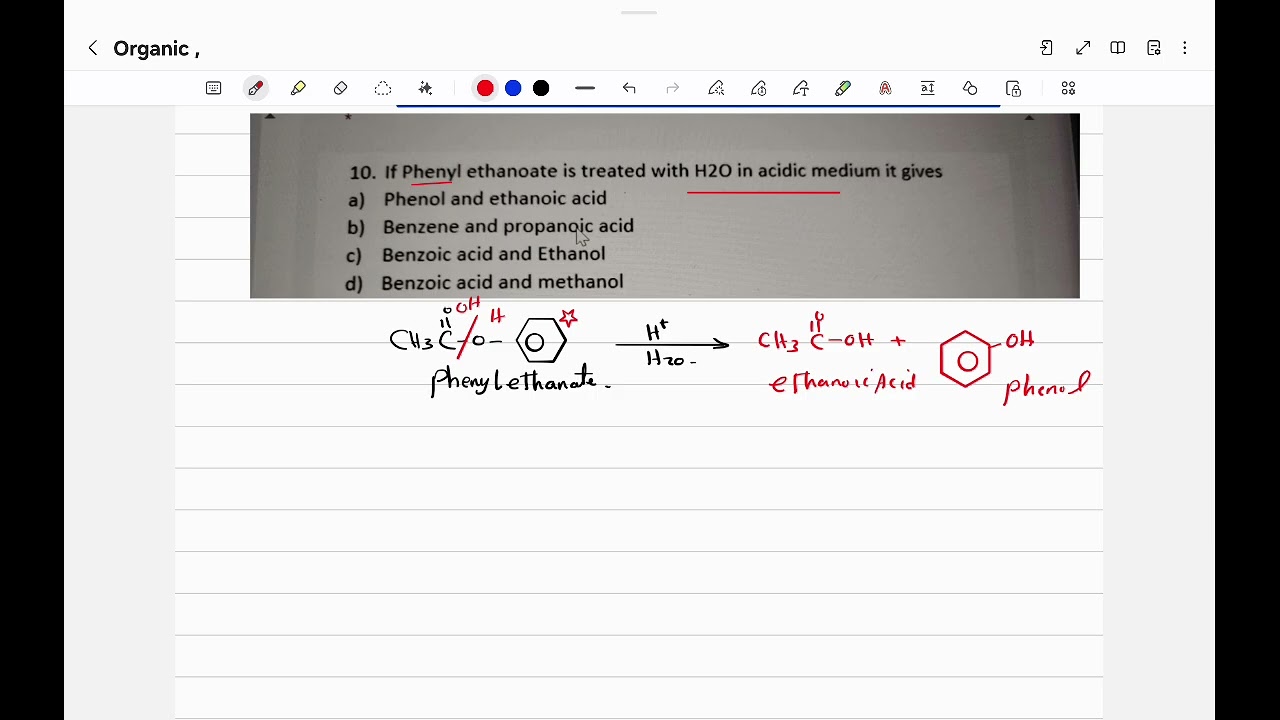 Organic ,
10. If Phenyl ethanoate is treated with H2O in acidic medium it gives
a) Phenol and ethanoic acid
b) Benzene and propanoic acid
c) Benzoic acid and Ethanol
d) Benzoic acid and methanol
O OH H
CH3 C-O- H+ CH3 C-OH + OH
O
H2O
Phenylethanate. ethanoic Acid phenol